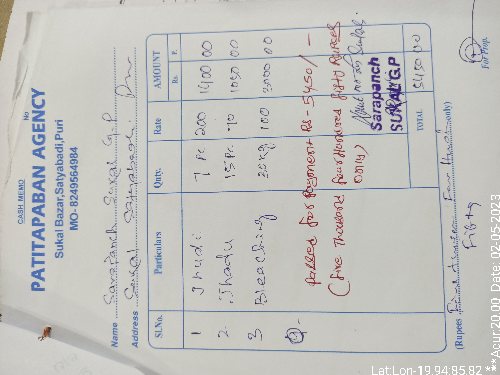 CASH MEMO
No
PATITAPABAN AGENCY
Sukal Bazar,Satyabadi,Puri
MO- 8249564984
Name Sarapanch Sukal G.P
Address Sukal Satyabadi Puri
Sl.No. Particulars Qnty. Rate AMOUNT
Rs. P.
1 Jhudi 7 Pc 200 1400 00
2 Jhadu 15 Pc 70 1050 00
3 Bleaching 30 Kg 100 3000 00
Passed for payment Rs- 5450/-
(Five thousand four Hundred fifty Rupees
only)
Sarapanch
SUKAL G.P
TOTAL 5450.00
(Rupees Five thousand Four Hundred only)
Fifty
For Prop.
Lat:Lon-19.94:85.82
***Acur:20.00 Date, 02.05.2023